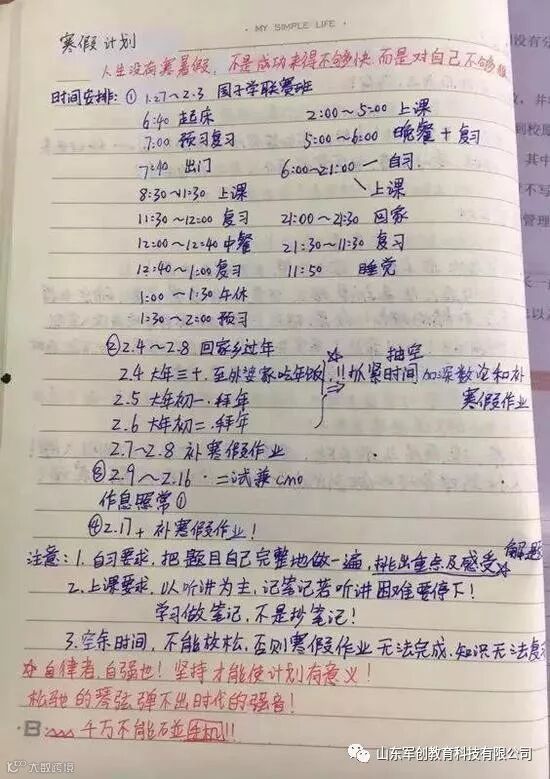 · MY SIMPLE LIFE ·
寒假计划
人生没有寒暑假，不是成功来得不够快，而是对自己不够狠
时间安排：① 1.27~2.3 国子学联赛班
6:40 起床 2:00~5:00 上课
7:00 预习复习 5:00~6:00 晚餐+复习
7:40 出门 6:00~21:00 — 自习.
8:30~11:30 上课 上课
11:30~12:00 复习 21:00~21:30 回家
12:00~12:40 中餐 21:30~11:30 复习
12:40~1:00 复习 11:50 睡觉
1:00~1:30 午休
1:30~2:00 预习
② 2.4~2.8 回家乡过年 ☆ 抽空
2.4 大年三十.至外婆家吃年饭.!!抓紧时间加深数论和补
2.5 大年初一.拜年 寒假作业
2.6 大年初二.拜年
2.7~2.8 补寒假作业
③ 2.9~2.16. 二试兼CMO
作息照常①
④ 2.17+ 补寒假作业！
注意：1.自习要求，把题目自己完整地做一遍，挑出重点及感受☆ 解题
2.上课要求，以听讲为主，记笔记若听讲困难要停下！
学习做笔记，不是抄笔记！
3.空余时间，不能放松，否则寒假作业无法完成，知识无法复习
☆自律者，自强也！坚持才能使计划有意义！
松驰的琴弦弹不出时代的强音！
B: 千万不能碰手机!!
大数跨境
山东军创教育科技有限公司
没有分
并
到校
其中
不写
管理